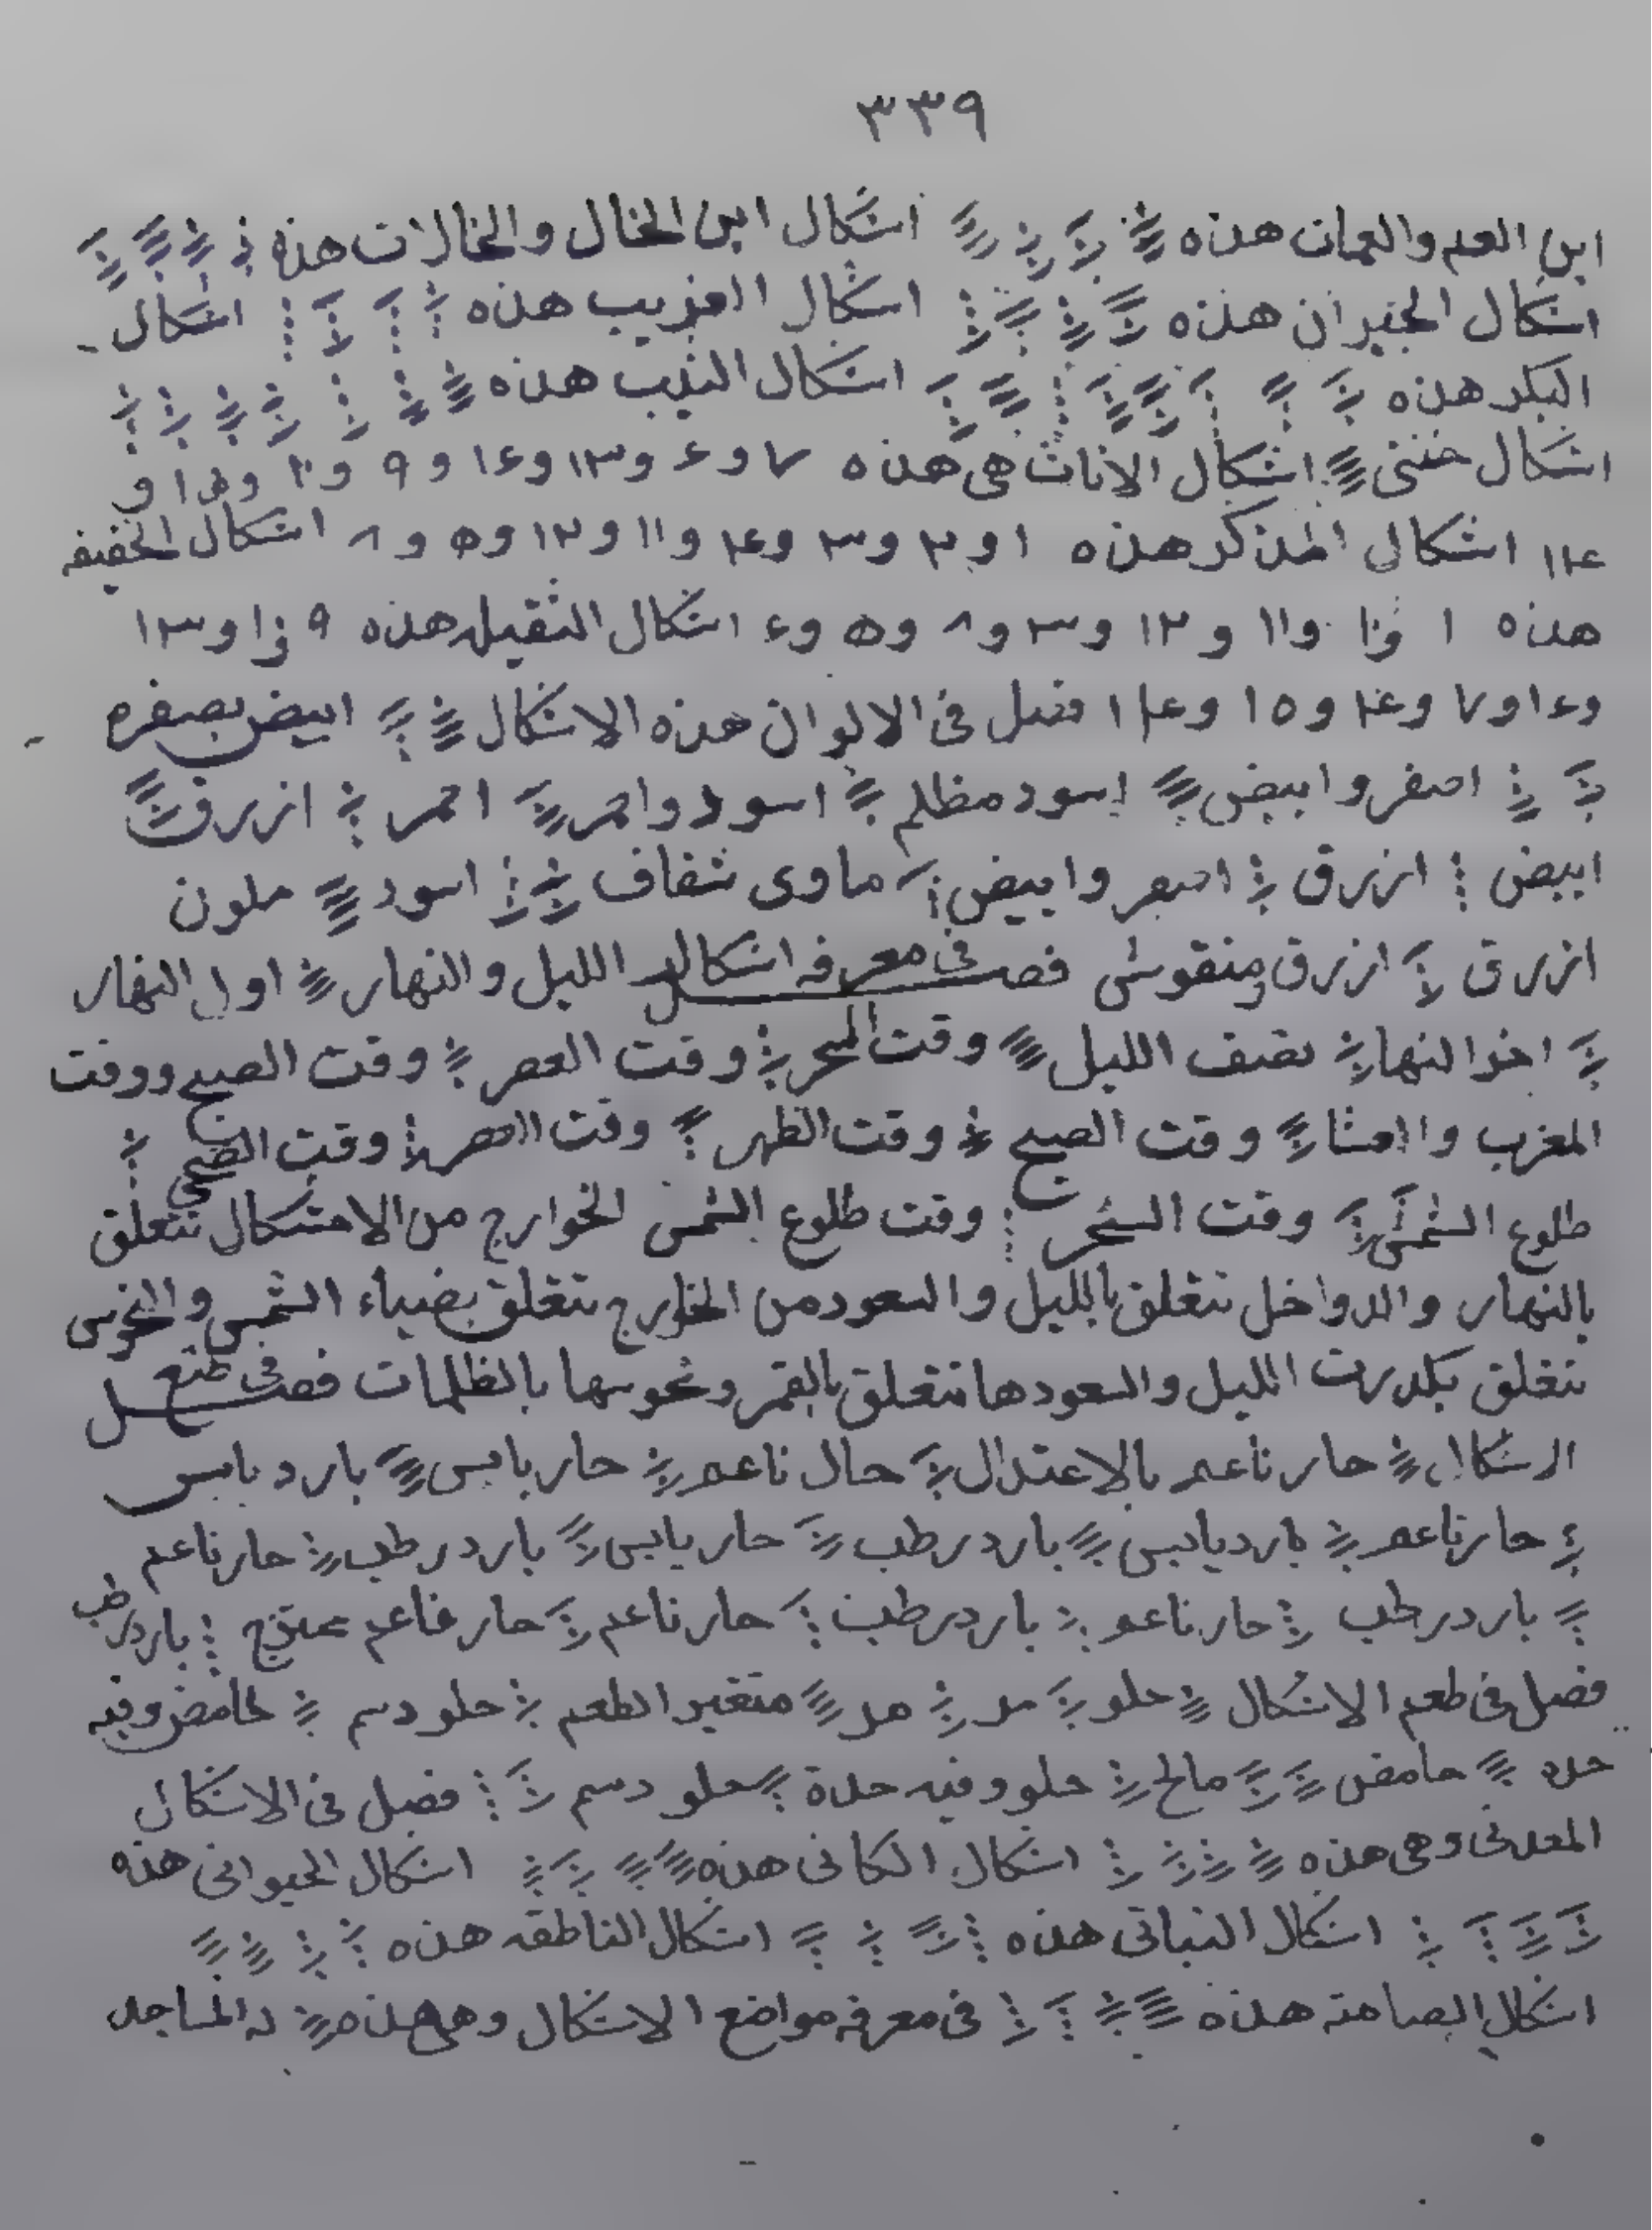 ٣٣٩
ابن العم والعمات هذه اشكال ابن الخال والخالات هذه
اشكال الجيران هذه اشكال الغريب هذه اشكال
البكر هذه اشكال الثيب هذه
اشكال خنثى اشكال الاناث هى هذه ٧ و ٤ و ١٣ و ١٤ و ٩ و ٢ و و
اشكال المذكر هذه ١ و ٢ و ٣ و و ١١ و ١٢ و ٥ و ٨ اشكال الخفيفه
هذه ١ و ١٠ و ١١ و ١٢ و ٣ و ٨ و ٥ و ٤ اشكال الثقيله هذه ٩ و ١٣
و ١٤ و ٧ و و ١٥ و فصل فى الالوان هذه الاشكال ابيض بصفره
اصفر وابيض اسود مظلم اسود واحمر احمر ازرق
ابيض ازرق اصفر وابيض ماوى شفاف اسود ملون
ازرق ازرق ومنقوش فصل فى معرفه اشكال الليل والنهار اول النهار
اخر النهار نصف الليل وقت السحر وقت العصر وقت الصبح ووقت
المغرب والعشا وقت الصبح وقت الظهر وقت العصر وقت الضحى
طلوع الشمس وقت السحر وقت طلوع الشمس الخوارج من الاشكال تتعلق
بالنهار والدواخل تتعلق بالليل والسعود من الخوارج تتعلق بضياء الشمس والنحوس
تتعلق بكدرت الليل والسعودها تتعلق بالقمر ونحوسها بالظلمات فصل فى طبع
الاشكال حار ناعم بالاعتدال حال ناعم حار يابس بارد يابس
حار ناعم بارد يابس بارد رطب حار يابس بارد رطب حار ناعم
بارد رطب حار ناعم بارد رطب حار ناعم حار فاعم ممتزج بارد رطب
فصل فى طعم الاشكال حلو مر مر متغير الطعم حلو دسم حامض وفيه
حده حامض مالح حلو وفيه حدة حلو دسم فصل فى الاشكال
المعدنى وهى هذه اشكال الكانى هذه اشكال الحيوانى هذه
اشكال النباتى هذه اشكال الناطقه هذه
اشكال الصامته هذه فى معرفه مواضع الاشكال وهى هذه له المساجد